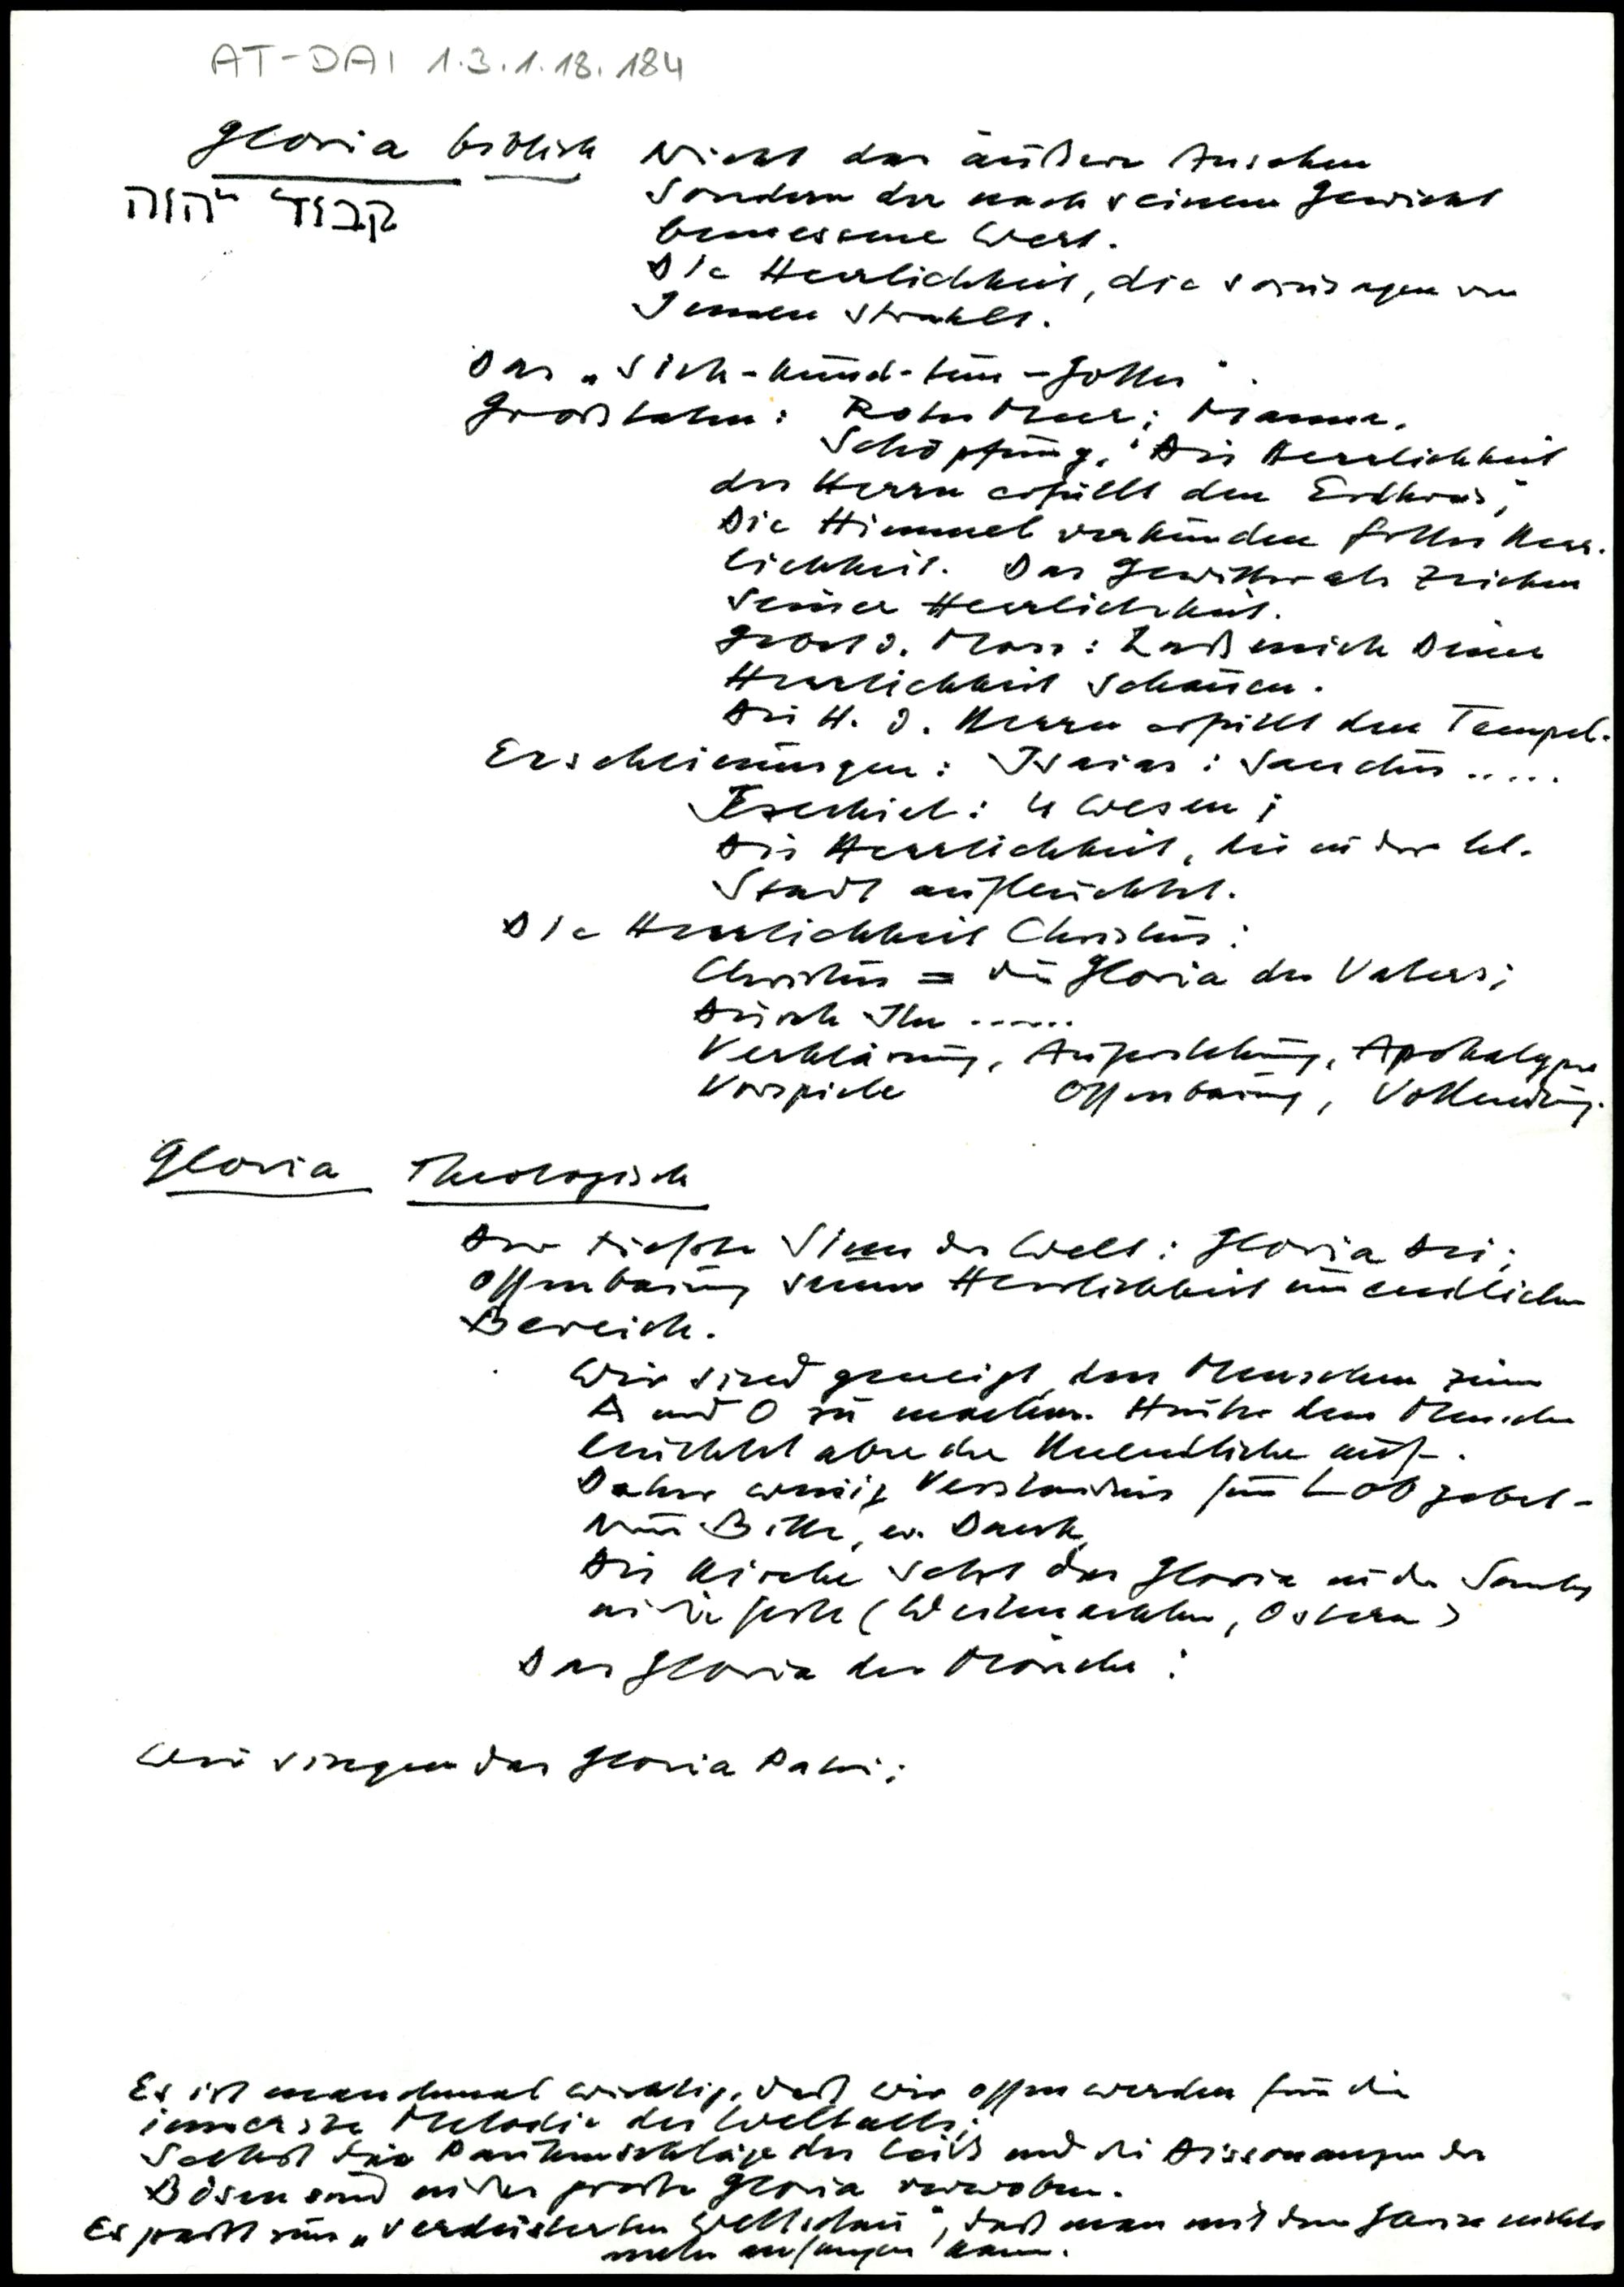 AT-DAI 1.3.1.18.184
Gloria biblisch Nicht das äußere Ansehen
קבוד יהוה sondern der nach seinem Gewicht
bemessene Wert.
Die Herrlichkeit, die sozusagen von
Innen strahlt.
Das „Sich-kund-tun-Gottes".
Großtaten: Rotes Meer; Manna.
Schöpfung. "Die Herrlichkeit
des Herrn erfüllt den Erdkreis;"
Die Himmel verkünden Gottes Herr-
lichkeit. Das Gewitter als Zeichen
seiner Herrlichkeit.
Gebet d. Mose: Laß mich Deine
Herrlichkeit schauen.
Die H. d. Herrn erfüllt den Tempel.
Erscheinungen: Isaias: Sanctus .....
Ezechiel: 4 Wesen;
Die Herrlichkeit, die in der hl.
Stadt aufleuchtet.
Die Herrlichkeit Christus:
Christus = die Gloria des Vaters;
Durch Ihn ......
Verklärung, Auferstehung, Apokalypse
Vorspiele Offenbarung, Vollendung.
Gloria Theologisch
Der tiefste Sinn der Welt: Gloria Dei;
Offenbarung seiner Herrlichkeit im endlichen
Bereich.
Wir sind geneigt, den Menschen zum
A und O zu machen. Hinter dem Menschen
leuchtet aber der Unendliche auf.
Daher wenig Verständnis für Lobgebet-
Nur Bitte, ev. Dank,
Die Kirche setzt das Gloria in die Sonntage
in die Feste (Weihnachten, Ostern)
Das Gloria der Mönche:
Wir singen das Gloria Patri;
Es ist manchmal wichtig, daß wir offen werden für die
innerste Melodie des Weltalls;
Selbst die Paukenschläge des Leids und die Dissonanzen des
Bösen sind in das große Gloria verwoben.
Es paßt zur „verdüsterten Weltschau", daß man mit dem Gloria nichts
mehr anfangen kann.